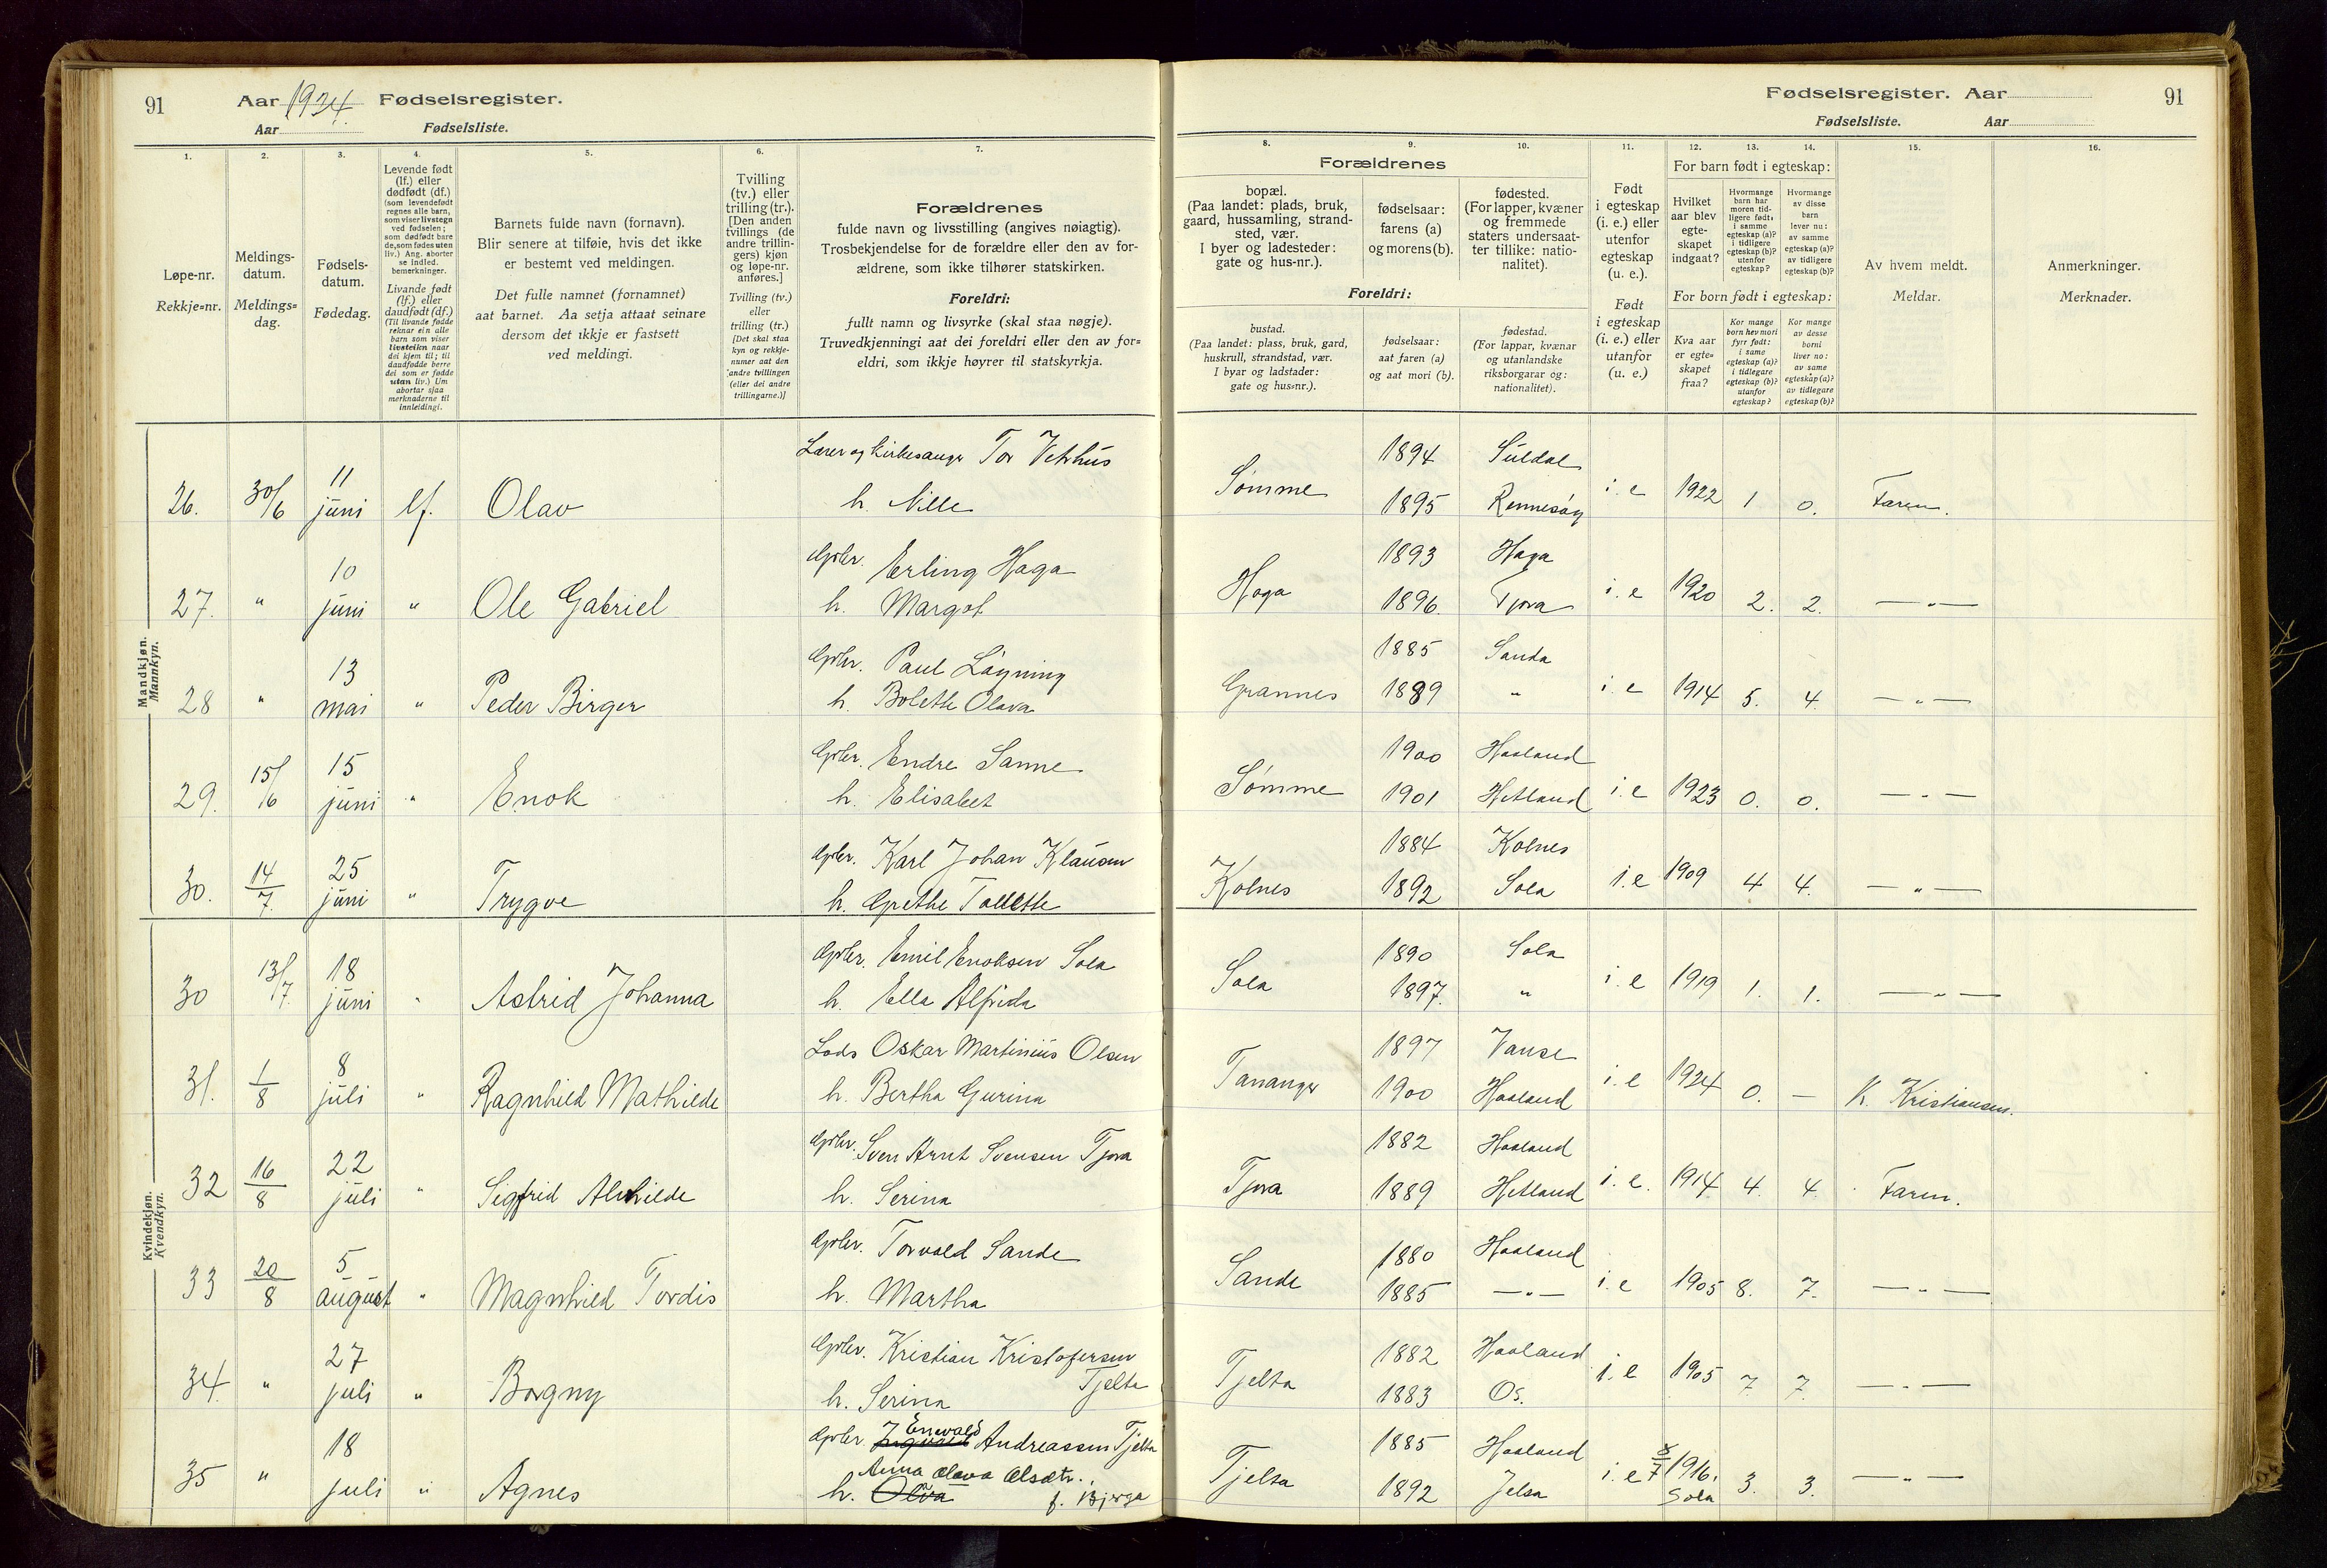 91
Aar 1924. Fødselsregister.
Aar Fødselsliste.
Fødselsregister. Aar
91
Fødselsliste. Aar
1. 2. 3. 4. 5. 6. 7. 8. 9. 10. 11. 12. 13. 14. 15. 16.
Løpe-nr.
Rekkje=nr.
Meldings-
datum.
Meldings=
dag.
Fødsels-
datum.
Fødedag.
Levende født
(lf.) eller
dødfødt (df.)
(som levendefødt
regnes alle barn,
som viser livstegn
ved fødselen;
som dødfødt bare
de, som fødes uten
liv.) Ang. aborter
se indled.
bemerkninger.
Livande født
(lf.) eller
daudfødt (df.)
(Til livande fødde
reknar ein alle
barn som viser
livsteikn naar
dei kjem til; til
daudfødde berre
dei som er fødde
utan liv.) Um
abortar sjaa
merknaderne til
innleidingi.
Barnets fulde navn (fornavn).
Blir senere at tilføie, hvis det ikke
er bestemt ved meldingen.
Det fulle namnet (fornamnet)
aat barnet. Aa setja attaat seinare
dersom det ikkje er fastsett
ved meldingi.
Tvilling
(tv.) eller
trilling (tr.).
[Den anden
tvillings (de
andre trillin-
gers) kjøn
og løpe-nr.
anføres.]
Tvilling (tv.)
eller
trilling (tr.)
[Det skal staa
kyn og rekkje-
numer aat den
andre tvillingen
(eller dei andre
trillingarne.)]
Forældrenes
fulde navn og livsstilling (angives nøiagtig).
Trosbekjendelse for de forældre eller den av for-
ældrene, som ikke tilhører statskirken.
Foreldri:
fullt namn og livsyrke (skal staa nøgje).
Truvedkjenningi aat dei foreldri eller den av for=
eldri, som ikkje høyrer til statskyrkja.
Forældrenes
bopæl.
(Paa landet: plads, bruk,
gaard, hussamling, strand-
sted, vær.
I byer og ladesteder:
gate og hus-nr.).
fødselsaar:
farens (a)
og morens (b).
fødested.
(For lapper, kvæner
og fremmede
staters undersaat-
ter tillike: natio-
nalitet).
Foreldri:
bustad.
(Paa landet: plass, bruk, gard,
huskrull, strandstad, vær.
I byar og ladstader:
gate og hus=nr.).
fødselsaar:
aat faren (a)
og aat mori (b).
fødestad.
(For lappar, kvænar
og utanlandske
riksborgarar og:
nationalitet).
Født
i egteskap
(i. e.) eller
utenfor
egteskap
(u. e.).
Født
i egteskap
(i. e.) eller
utanfor
(u. e.)
For barn født i egteskap:
Hvilket
aar blev
egte-
skapet
indgaat?
Hvormange
barn har
moren tid-
ligere født:
i samme
egteskap (a)?
i tidligere
egteskap (b)?
utenfor
egteskap?
Hvormange
av disse
barn
lever nu:
av samme
egteskap (a)?
av tidligere
egteskap (b)?
For born født i egteskap:
Kva aar
er egte=
skapet
fraa?
Kor mange
born hev mori
fyrr født:
i same
egteskap (a)?
i tidlegare
egteskap (b)?
utanfor
egteskap?
Kor mange
av desse
borni
liver no:
av same
egteskap (a)?
av tidlegare
egteskap (b)?
Av hvem meldt.
Meldar.
Anmerkninger.
Merknader.
Mandkjøn.
Mannkyn.
Lærer og kirkesanger Tor Vetrhus 1894 Suldal
26. 30/6 11 juni lf. Olav h. Nille Sømme 1895 Rennesøy i. e 1922 1 0. Faren.
Gbr. Erling Haga 1893 Haga
27. " 10 juni " Ole Gabriel h. Margot Haga 1896. Tjora i. e 1920 2. 2. — " —
Gbr. Paul Løyning 1885 Sanda
28 " 13 mai " Peder Birger h. Bolette Olava Grannes 1889 " i. e 1914 5. 4. — " —
Gbr. Endre Sanne 1900 Haaland
29. 15/6 15 juni " Enok h. Elisabet Sømme 1901 Hetland i. e 1923 0. 0. — " —
Gbr. Karl Johan Klausen 1884 Kolnes
30. 14/7. 25 juni " Trygve h. Grethe Tollette Kolnes 1892 Sola i. e 1909 4 4. — " —
Kvindekjøn.
Kvendkyn.
Gbr. Emil Enoksen Sola 1890 Sola
30 13/7. 18 juni " Astrid Johanna h. Ella Alfrida Sola 1897. " i. e 1919 1. 1. — " —
Lods Oskar Martinius Olsen 1897 Vanse
31. 1/8 8 juli " Ragnhild Mathilde h. Bertha Gurina Tananger 1900 Haaland i. e 1924 0. — K. Kristiansen.
Gbr. Sven Arnt Svensen Tjora 1882 Haaland
32 16/8 22 juli " Sigfrid Alvhilde h. Serina Tjora 1889 Hetland i. e. 1914 4. 4. Faren.
Gbr. Torvald Sande 1880 Haaland
33 20/8 5 august " Magnhild Tordis h. Martha Sande 1885 — " — i. e 1905 8. 7. — " —
Gbr. Kristian Kristofersen 1882 Haaland
Tjelta
34. " 27 juli " Borgny h. Serina Tjelta 1883 Os. i. e 1905 7. 7. — " —
Enevald
Gbr. Ingvald Andreassen Tjelta 1885 Haaland
Anna Olava Olsdtr.
35 " 18 juli " Agnes h. Olava f. Bjerga Tjelta 1892 Jelsa i. e 8/7 1916. Sola 3. 3. — " —